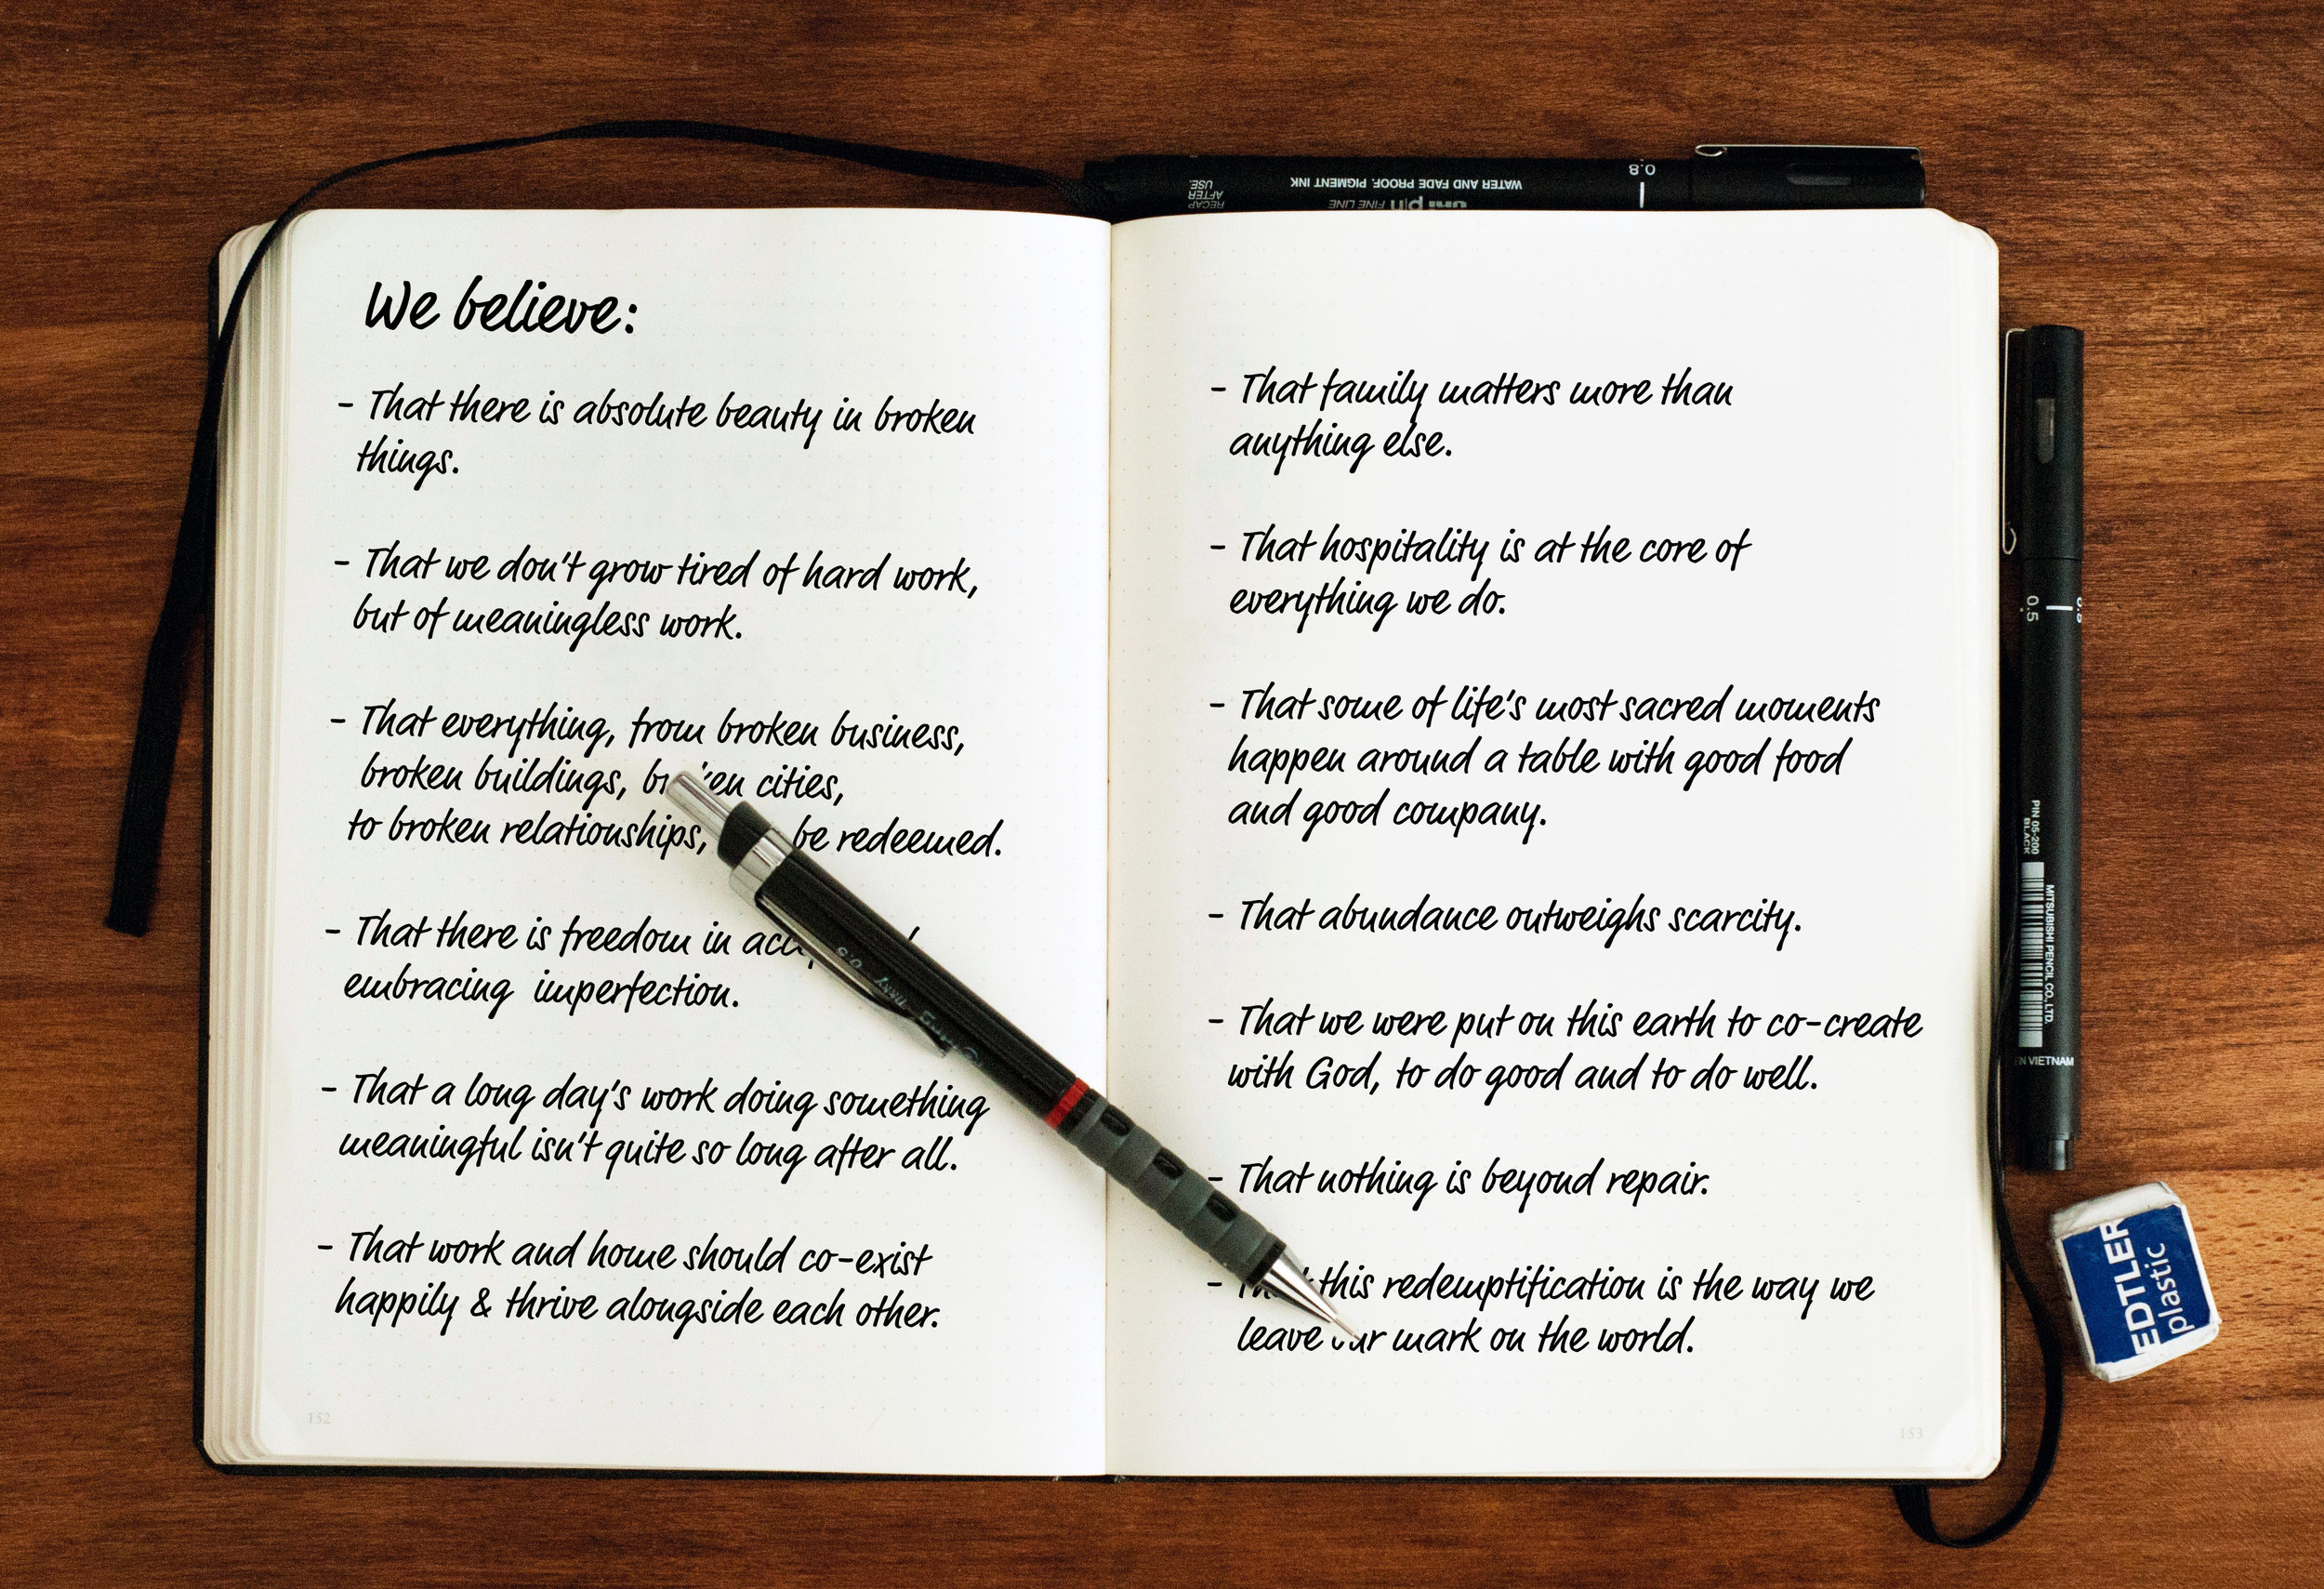 We believe:
- That there is absolute beauty in broken
things.
- That we don't grow tired of hard work,
but of meaningless work.
- That everything, from broken business,
broken buildings, cities,
to broken relationships, be redeemed.
- That there is freedom in
embracing imperfection.
- That a long day's work doing something
meaningful isn't quite so long after all.
- That work and home should co-exist
happily & thrive alongside each other.
152
- That family matters more than
anything else.
- That hospitality is at the core of
everything we do.
- That some of life's most sacred moments
happen around a table with good food
and good company.
- That abundance outweighs scarcity.
- That we were put on this earth to co-create
with God, to do good and to do well.
- That nothing is beyond repair.
- That this redemptification is the way we
leave our mark on the world.
153
0.8
WATER AND FADE PROOF, PIGMENT INK
uni pin FINE LINE
RECAP
AFTER
USE.
0.5
PIN 05-200
BLACK
MITSUBISHI PENCIL CO., LTD.
VIETNAM
0.5
EDTLER
plastic